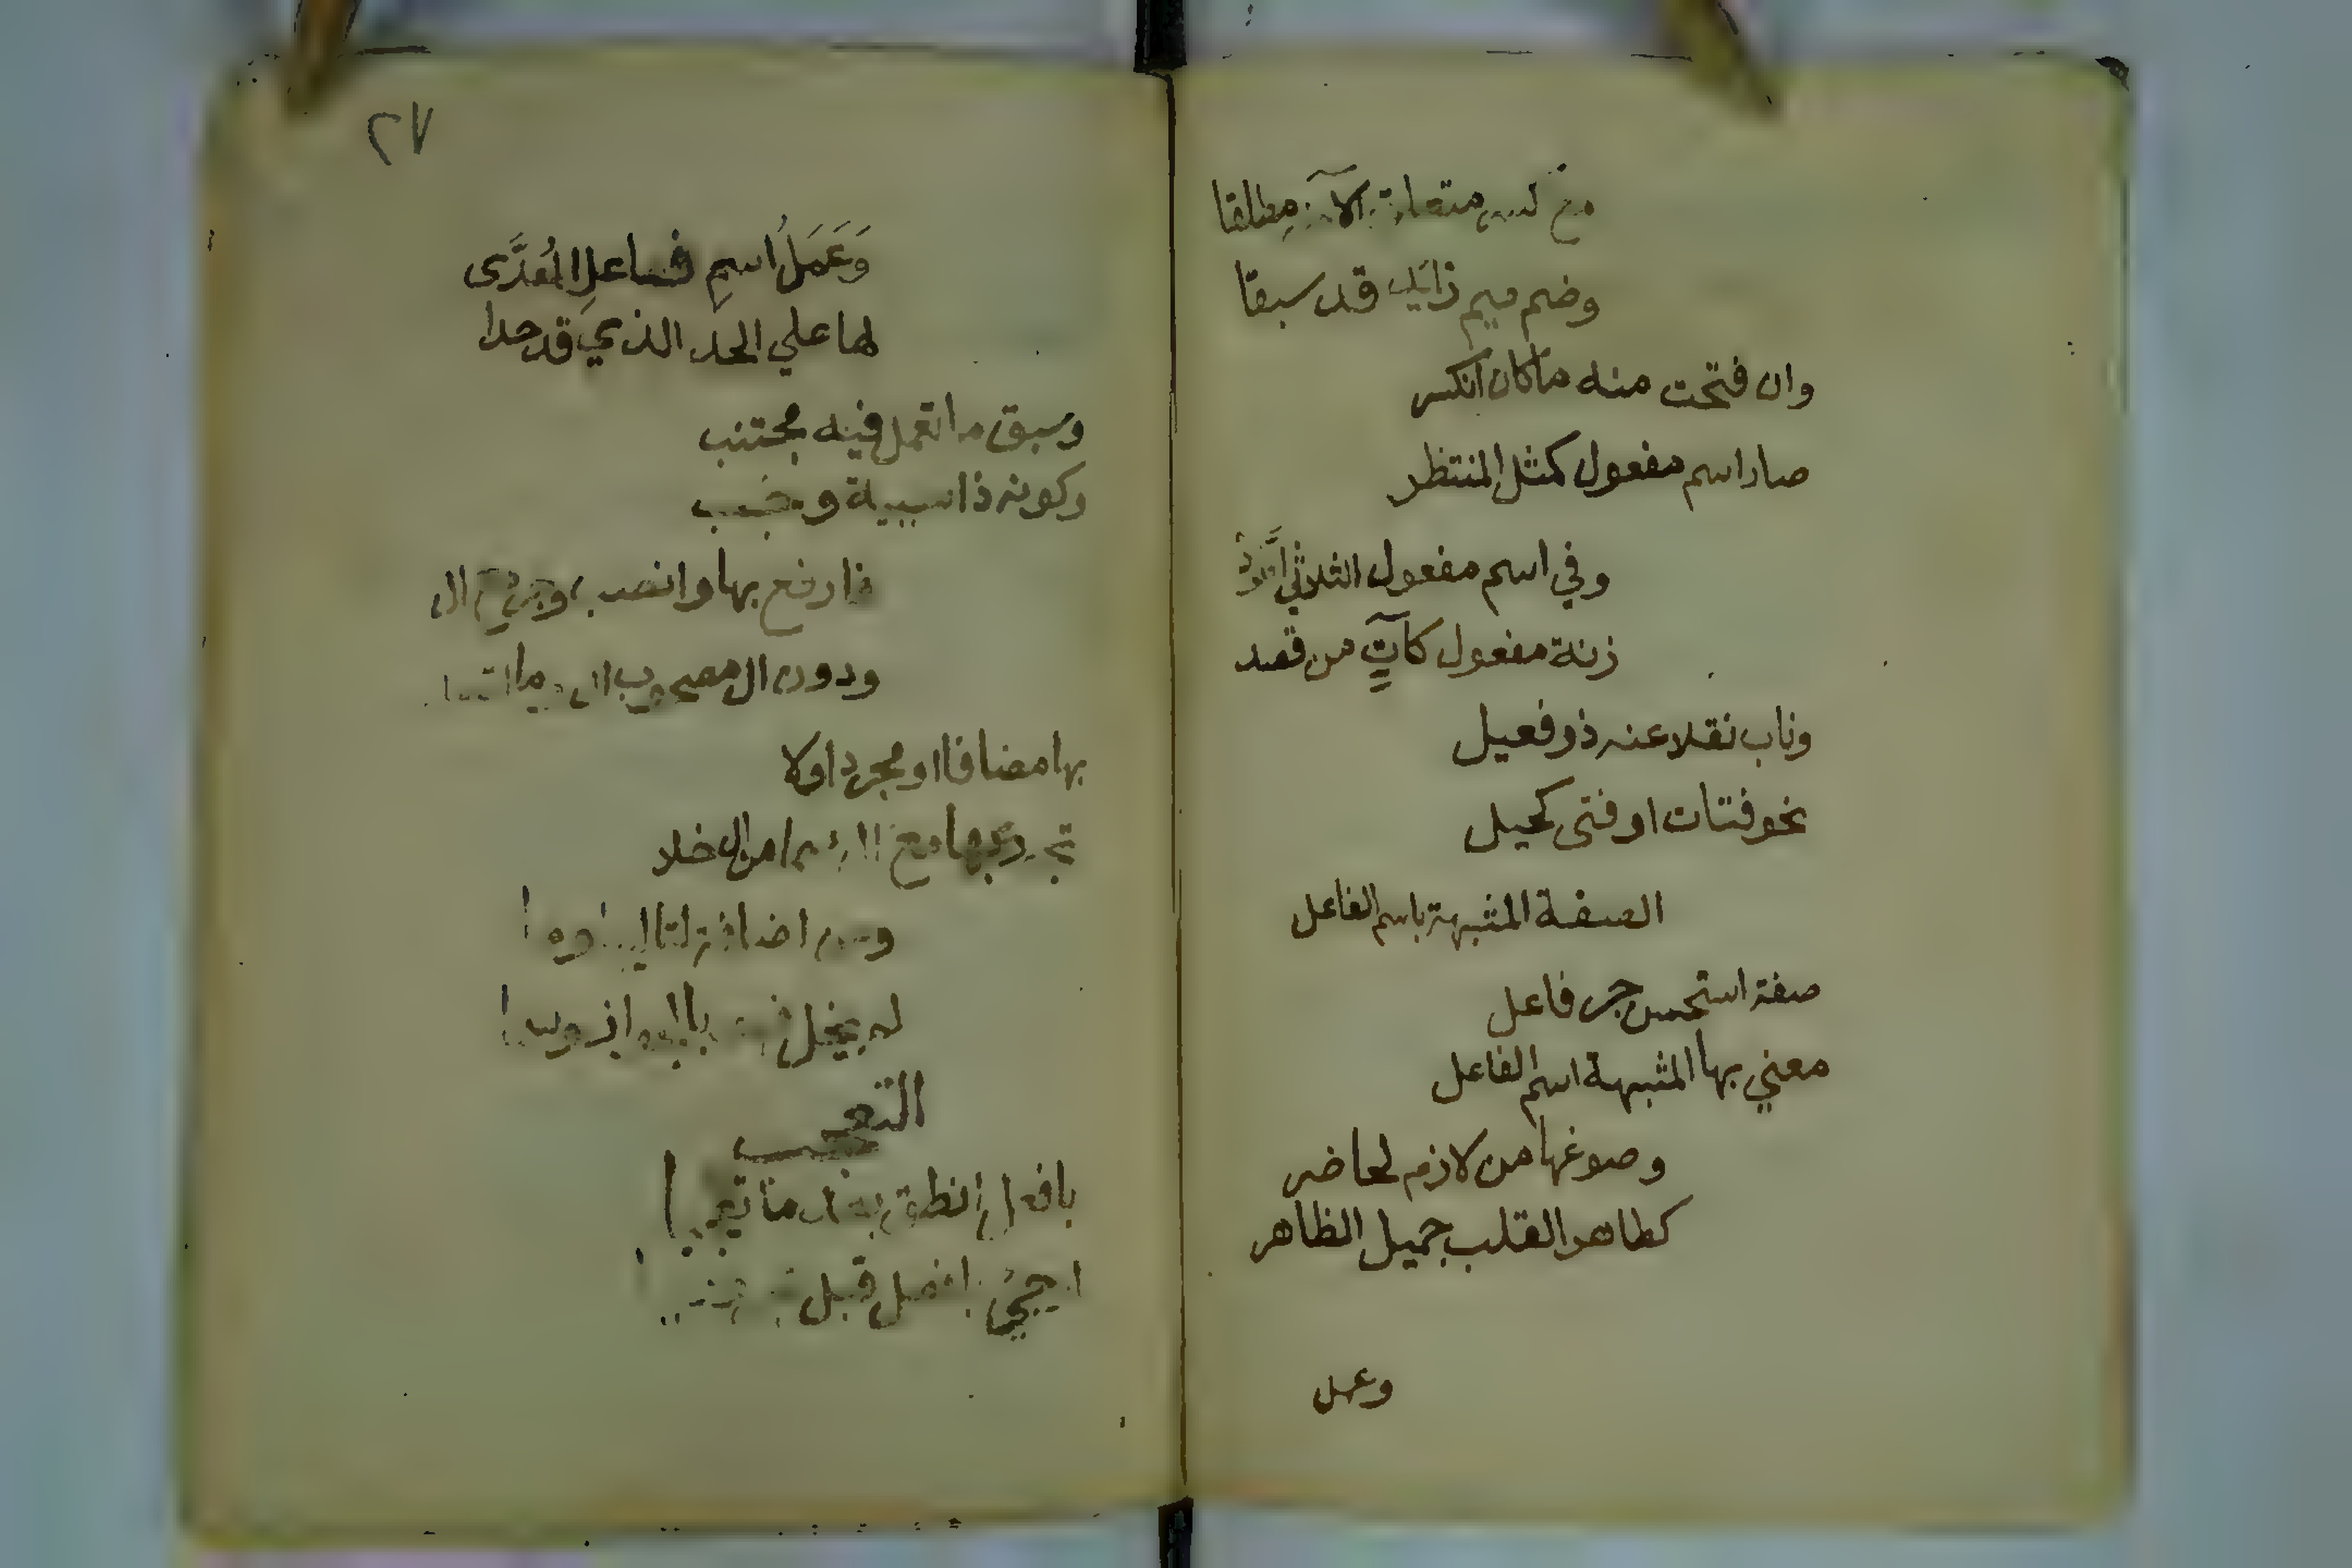 مع كسر متلو الاخير مطلقا
وضم ميم زايد قد سبقا
وان فتحت منه ما كان انكسر
صار اسم مفعول كمثل المنتظر
وفي اسم مفعول الثلاثي اطرد
زنة مفعول كآت من قصد
وناب نقلا عنه ذو فعيل
نحو فتات او فتى كحيل
الصفة المشبهة باسم الفاعل
صفة استحسن جر فاعل
معني بها المشبهة اسم الفاعل
وصوغها من لازم لحاضر
كطاهر القلب جميل الظاهر
وعمل
٢٧
وَعَمَلُ اسمِ فاعلِ المُعَدَّى
لها علي الحد الذي قد حدا
وسبق ما تعمل فيه مجتنب
وكونه ذا سببية وجب
فارفع بها وانصب وجر مع ال
ودون ال مصحوب ال وما اتصل
بها مضافا او مجردا ولا
تجرر بها مع ال سما من ال خلا
ومن اضافة لتاليها وما
لم يخل فهو بالجواز وسما
التعجب
بافعل انطق بعد ما تعجبا
او جئ بافعل قبل